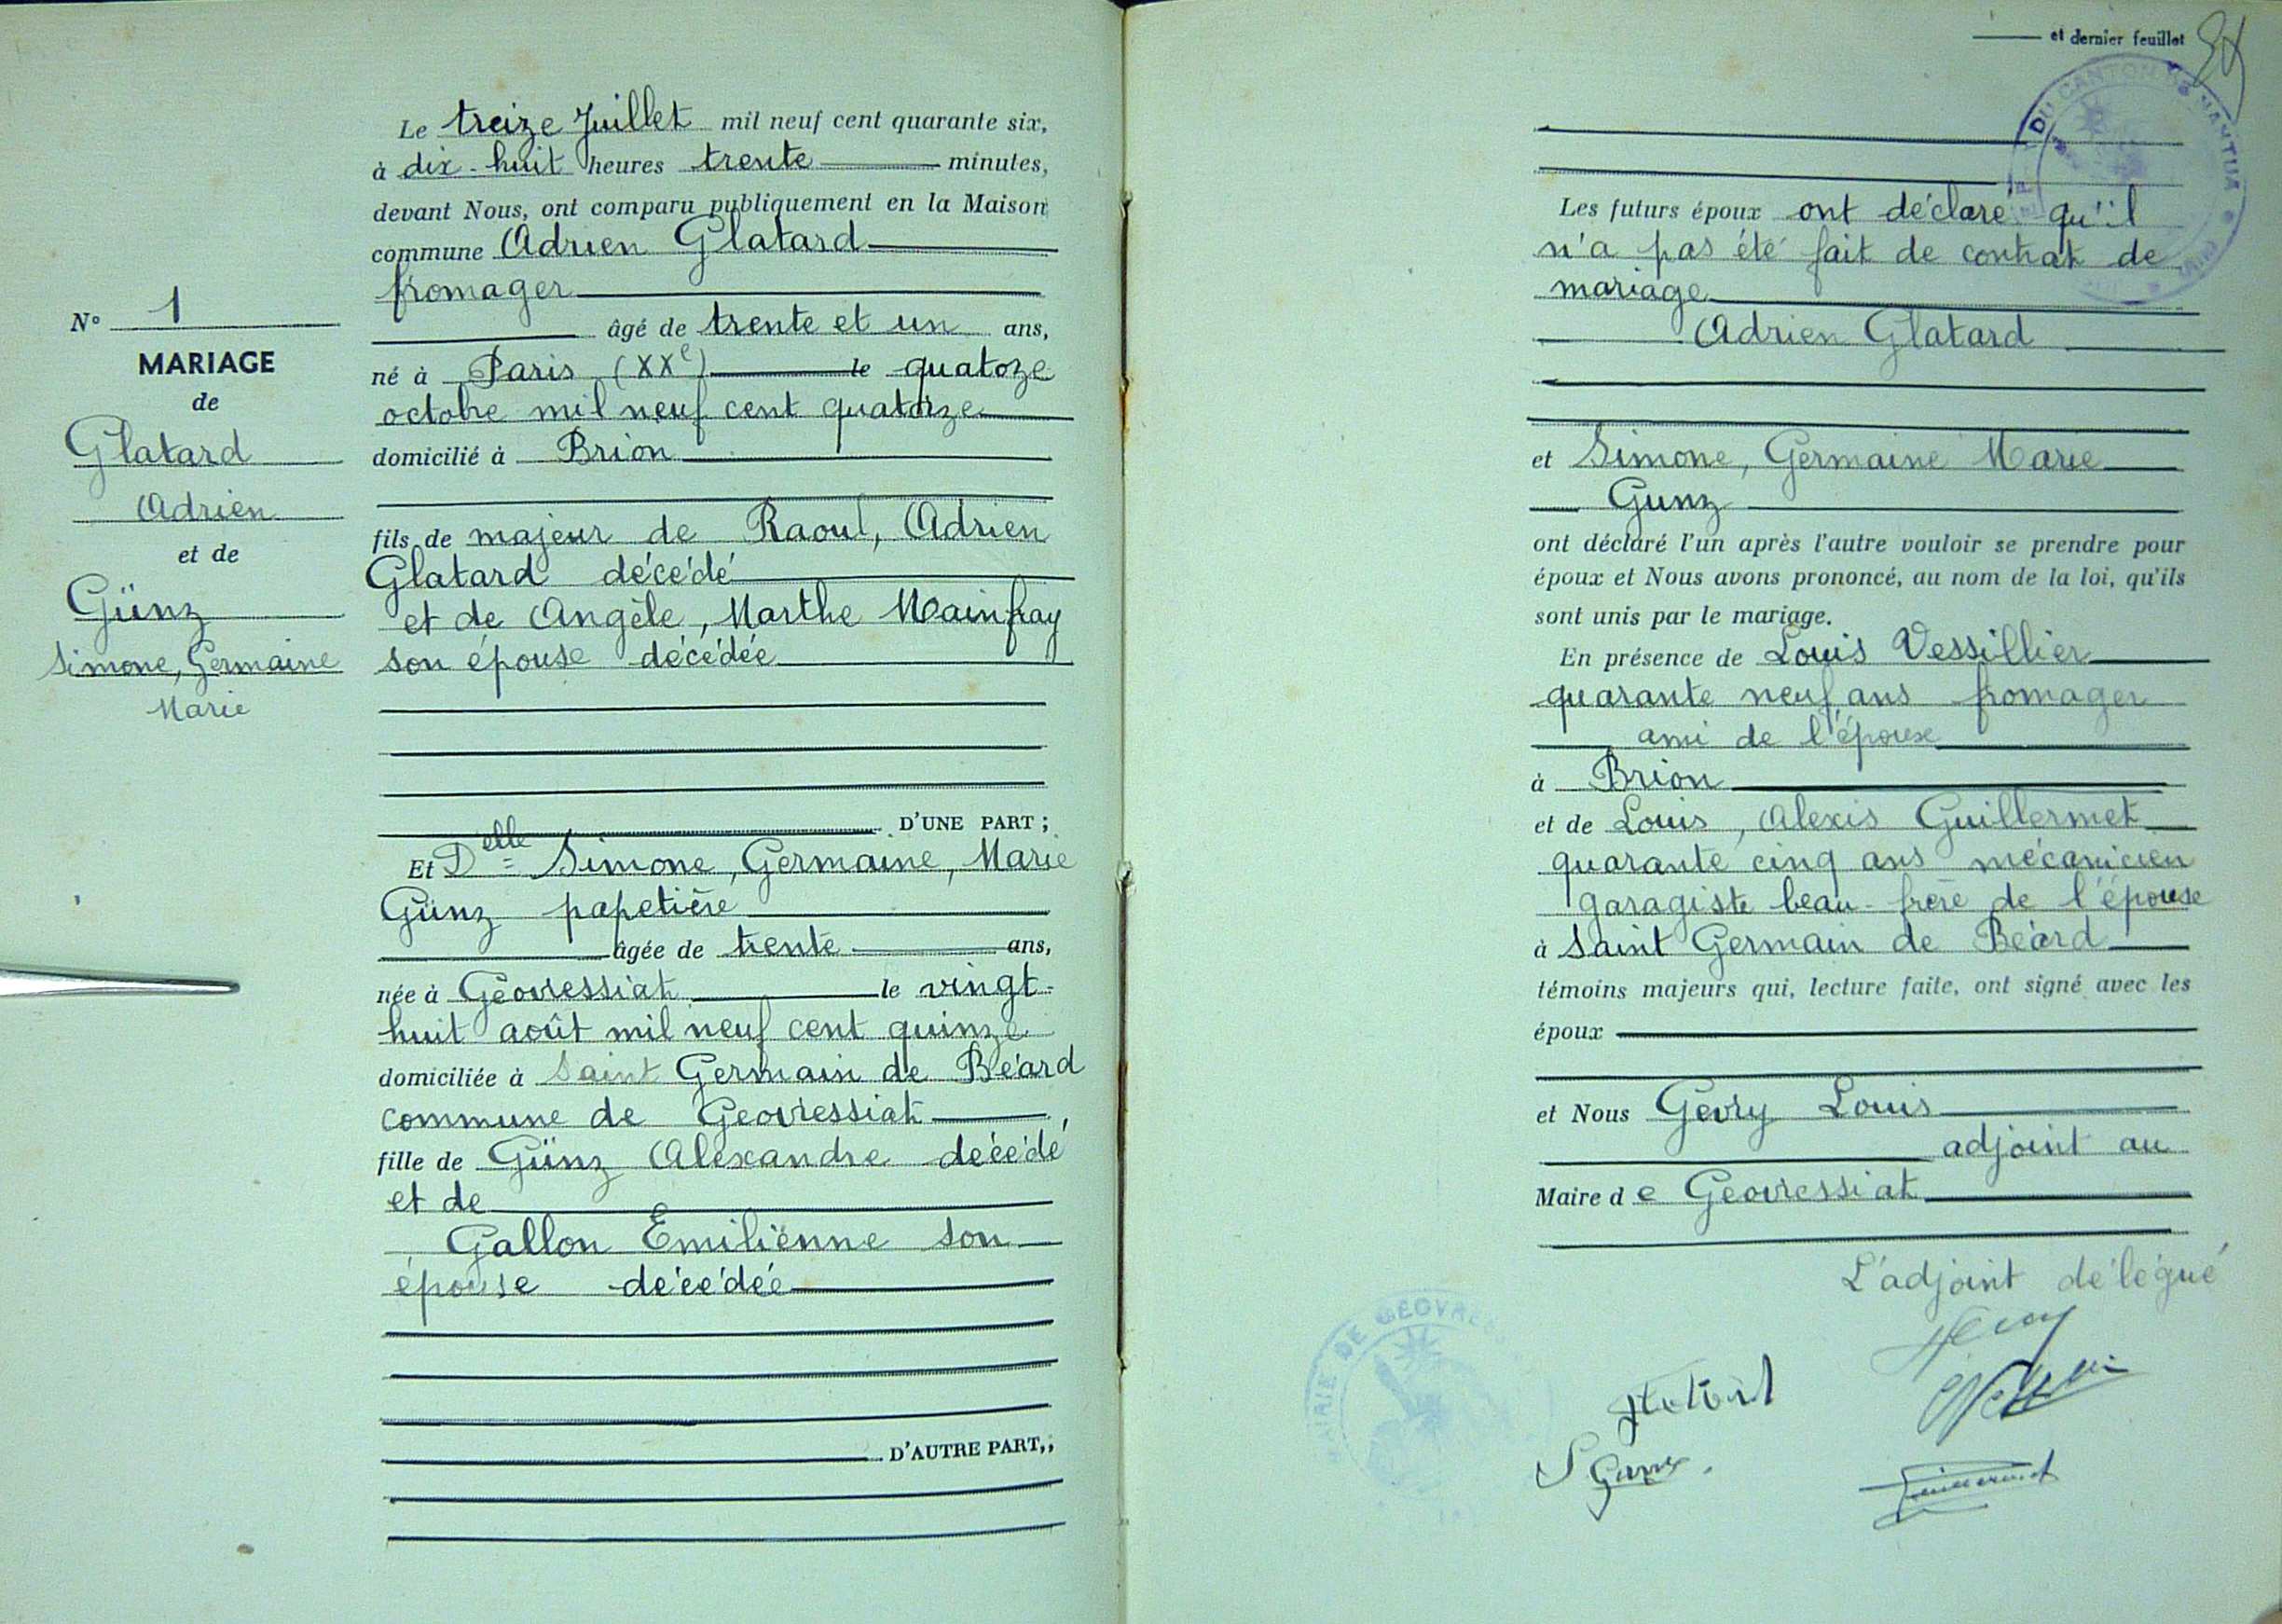 N° 1
MARIAGE
de
Glatard
Adrien
et de
Günz
Simone, Germaine
Marie
Le treize Juillet mil neuf cent quarante six,
à dix-huit heures trente minutes,
devant Nous, ont comparu publiquement en la Maison
commune Adrien Glatard
fromager
âgé de trente et un ans,
né à Paris (XXe) le quatoze
octobre mil neuf cent quatorze
domicilié à Brion
fils de majeur de Raoul, Adrien
Glatard décédé
et de Angèle, Marthe Mainfray
son épouse décédée
D'UNE PART ;
Et Delle Simone, Germaine, Marie
Günz papetière
âgée de trente ans,
née à Géovressiat le vingt-
huit août mil neuf cent quinze
domiciliée à Saint Germain de Béard
commune de Geovressiat
fille de Günz Alexandre décédé
et de
Gallon Emiliènne son
épouse décédée
D'AUTRE PART,,
et dernier feuillet
DU CANTON DE NANTUA
Les futurs époux ont déclaré qu'il
n'a pas été fait de contrat de
mariage
Adrien Glatard
et Simone, Germaine Marie
Gunz
ont déclaré l'un après l'autre vouloir se prendre pour
époux et Nous avons prononcé, au nom de la loi, qu'ils
sont unis par le mariage.
En présence de Louis Vessillier
quarante neuf ans fromager
ami de l'épouse
à Brion
et de Louis, Alexis Guillermet
quarante cinq ans mécanicien
garagiste beau-frère de l'épouse
à Saint Germain de Béard
témoins majeurs qui, lecture faite, ont signé avec les
époux
et Nous Gevry Louis
adjoint au
Maire de Geovressiat
L'adjoint délégué
MAIRIE DE GEOVRESS
S Gunz
Guillermet